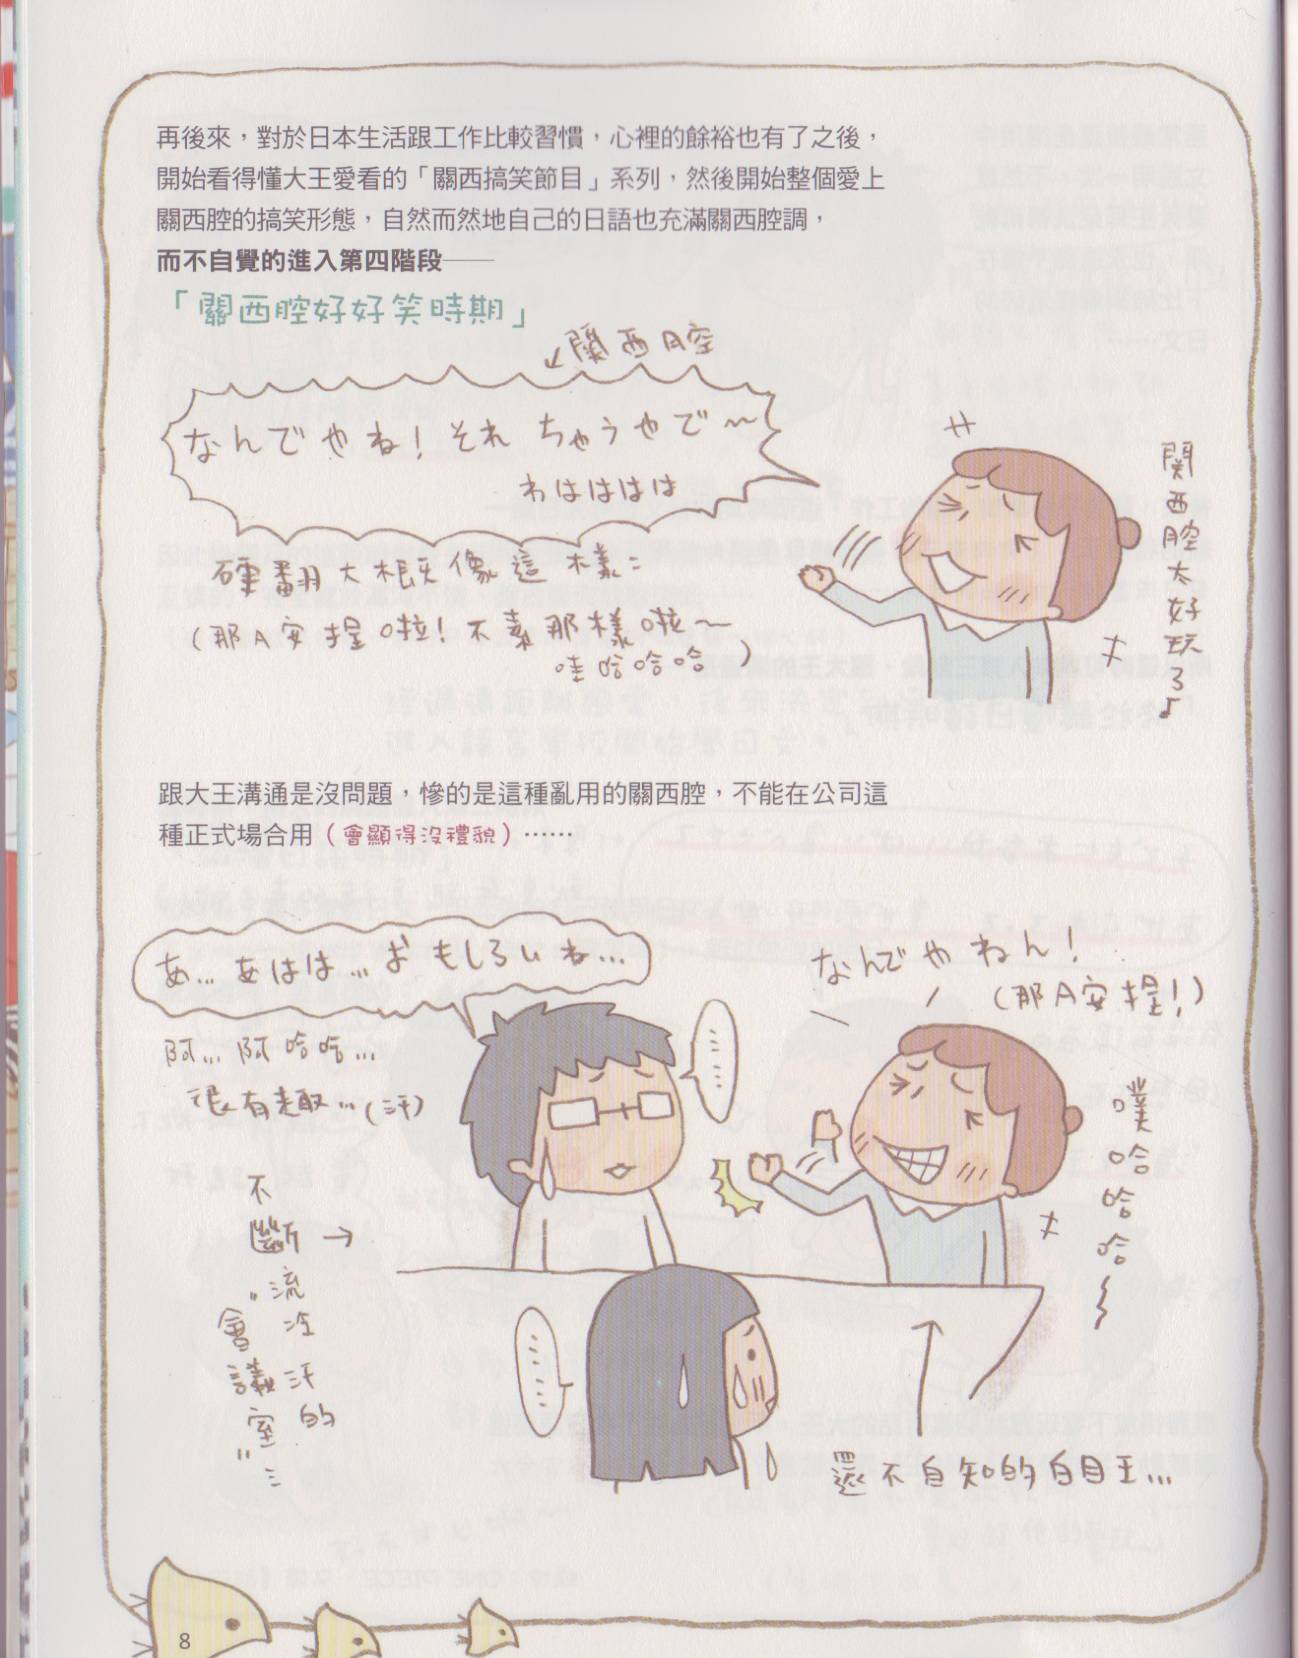 再後來，對於日本生活跟工作比較習慣，心裡的餘裕也有了之後，
開始看得懂大王愛看的「關西搞笑節目」系列，然後開始整個愛上
關西腔的搞笑形態，自然而然地自己的日語也充滿關西腔調，
而不自覺的進入第四階段——
「關西腔好好笑時期」
↙関西腔
なんでやね！それ ちゃうやで～
わはははは
硬翻大概像這樣：
（那A安捏啦！不素那樣啦～
哇哈哈哈）
関西腔太好玩了♪
跟大王溝通是沒問題，慘的是這種亂用的關西腔，不能在公司這
種正式場合用（會顯得沒禮貌）……
あ…あはは…おもしろいね…
阿…阿哈哈…
很有趣…（汗）
……
なんでやねん！
（那A安捏！）
噗哈哈哈～
不斷→
流冷汗的
"會議室"…
……
還不自知的白目王…
8